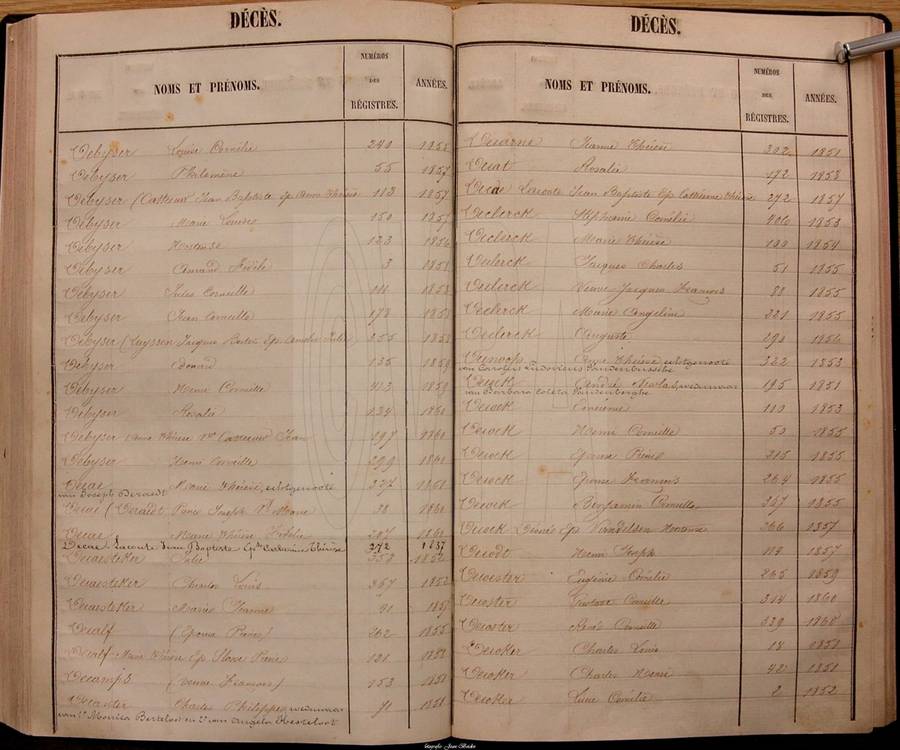 DÉCÈS.
NOMS ET PRÉNOMS. NUMÉROS DES RÉGISTRES. ANNÉES.
Debyser Louise Cornélie 240 1852
Debyser Philomène 55 1857
Debyser (Casteur Jean Baptiste Ep Anne Thérèse 113 1857
Debyser Marie Louise 150 1857
Debyser Hortense 123 1856
Debyser Amand Fidèle 3 1851
Debyser Jules Corneille 1853
Debyser Jean Corneille 178 1853
Debyser Jacques Ep Amelie Julie 255 1858
Debyser Edouard 135 1859
Debyser Henri Corneille 413 1859
Debyser Rosalie 134 1860
Debyser Anne Thérèse Jean 197 1860
Debyser Henri Corneille 299 1860
Decae Marie Thérèse, echtgenoote 327 1851
van Joseph Deraedt
Decae (Deraedt Pierre Joseph Marie 38 1860
Decae Marie Thérèse 207 1860
Decae Lacoute Jean Baptiste Ep. Catherine Thérèse 272 1857
Decaesteker Julie 353 1852
Decaesteker Charles Louis 367 1852
Decaesteker Marie Jeanne 91 1857
Decalf (Epouse Pierre) 262 1855
Decalf Marie Thérèse Ep Pierre 131 1852
Decamps (Veuve François) 153 1851
Charles Philippe, weduwnaar 91 1851
van 1° Monica Berteloot en 2° van Angela Hesteloot
DÉCÈS.
NOMS ET PRÉNOMS. NUMÉROS DES RÉGISTRES. ANNÉES.
Jeanne Thérèse 302 1851
Decat Rosalie 192 1853
Decae Lacoute Jean Baptiste Ep Catherine Thérèse 272 1857
Declerck Stéphanie Cornélie 406 1853
Declerck Marie Thérèse 190 1854
Declerck Jacques Charles 51 1855
Declerck Veuve Jacques François 81 1855
Declerck Marie Angeline 221 1855
Declerck Auguste 290 1856
Anne Thérèse, echtgenoote 322 1853
van Carolus Ludovicus Vandenbussche
Decock André Nicolas, weduwnaar 195 1851
van Barbara Coleta Vandenberghe
Decock 1853
Decock Henri Corneille 50 1855
Decock Epouse Pierre 215 1855
Decock Epouse François 264 1855
Decock Benjamin Corneille 367 1855
Decock Désiré Ep Hortense 366 1857
Decodt Henri Joseph 119 1857
Decoester Eugénie Cornélie 265 1859
Decoster Gustave Corneille 314 1860
Decoster René Corneille 339 1860
Decoker Charles Louis 18 1851
Decoker Charles Henri 42 1851
Decoker Cornélie 2 1852